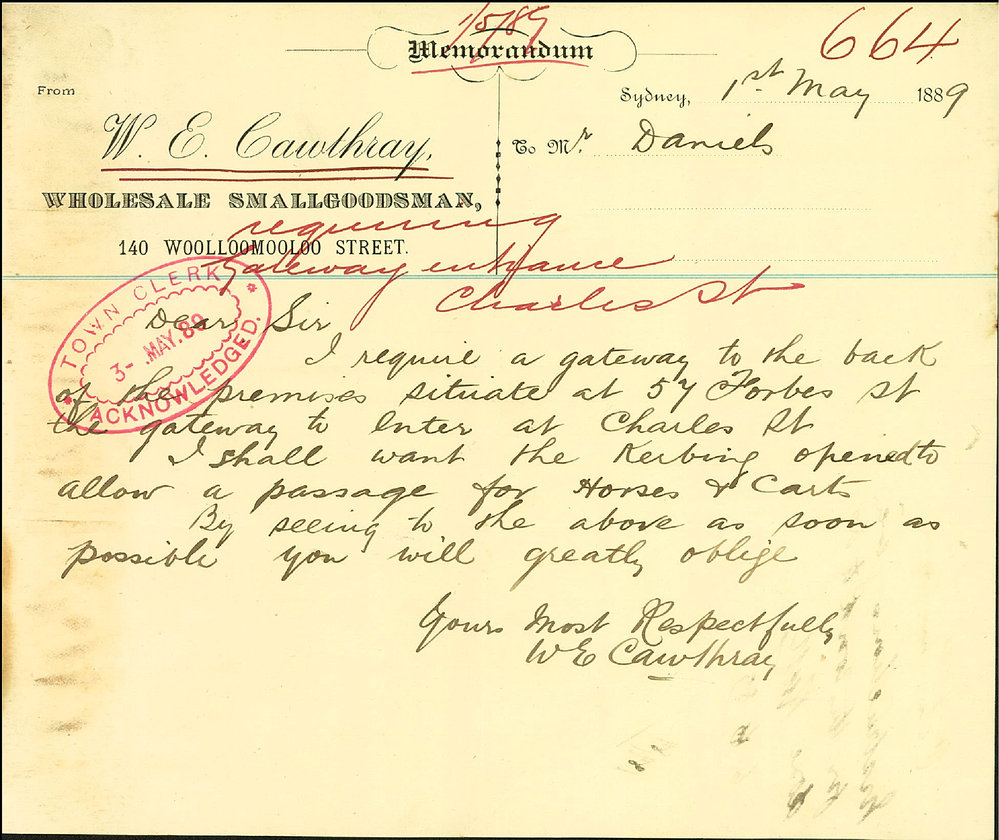 1/5/89
664
Memorandum
From
Sydney, 1st May 1889
W. E. Cawthray,
To Mr. Daniels
WHOLESALE SMALLGOODSMAN,
140 WOOLLOOMOOLOO STREET.
requiring
Gateway entrance
Charles St
TOWN CLERK
3- MAY. 89
ACKNOWLEDGED.
Dear Sir
I require a gateway to the back
of the premises situate at 57 Forbes St
the gateway to Enter at Charles St
I shall want the Kerbing opened to
allow a passage for Horses & Carts
By seeing to the above as soon as
possible you will greatly oblige
Yours Most Respectfully
W E Cawthray